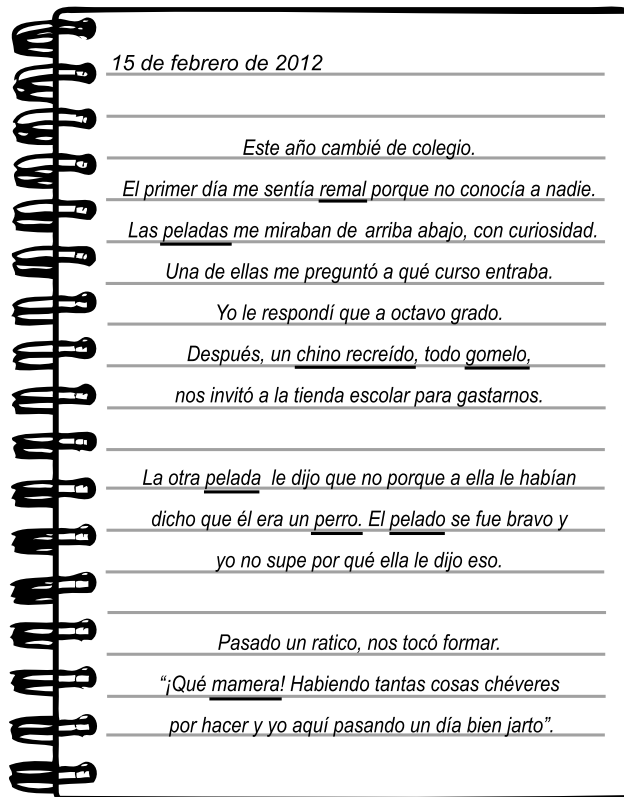 15 de febrero de 2012
Este año cambié de colegio.
El primer día me sentía remal porque no conocía a nadie.
Las peladas me miraban de arriba abajo, con curiosidad.
Una de ellas me preguntó a qué curso entraba.
Yo le respondí que a octavo grado.
Después, un chino recreído, todo gomelo,
nos invitó a la tienda escolar para gastarnos.
La otra pelada le dijo que no porque a ella le habían
dicho que él era un perro. El pelado se fue bravo y
yo no supe por qué ella le dijo eso.
Pasado un ratico, nos tocó formar.
“¡Qué mamera! Habiendo tantas cosas chéveres
por hacer y yo aquí pasando un día bien jarto”.